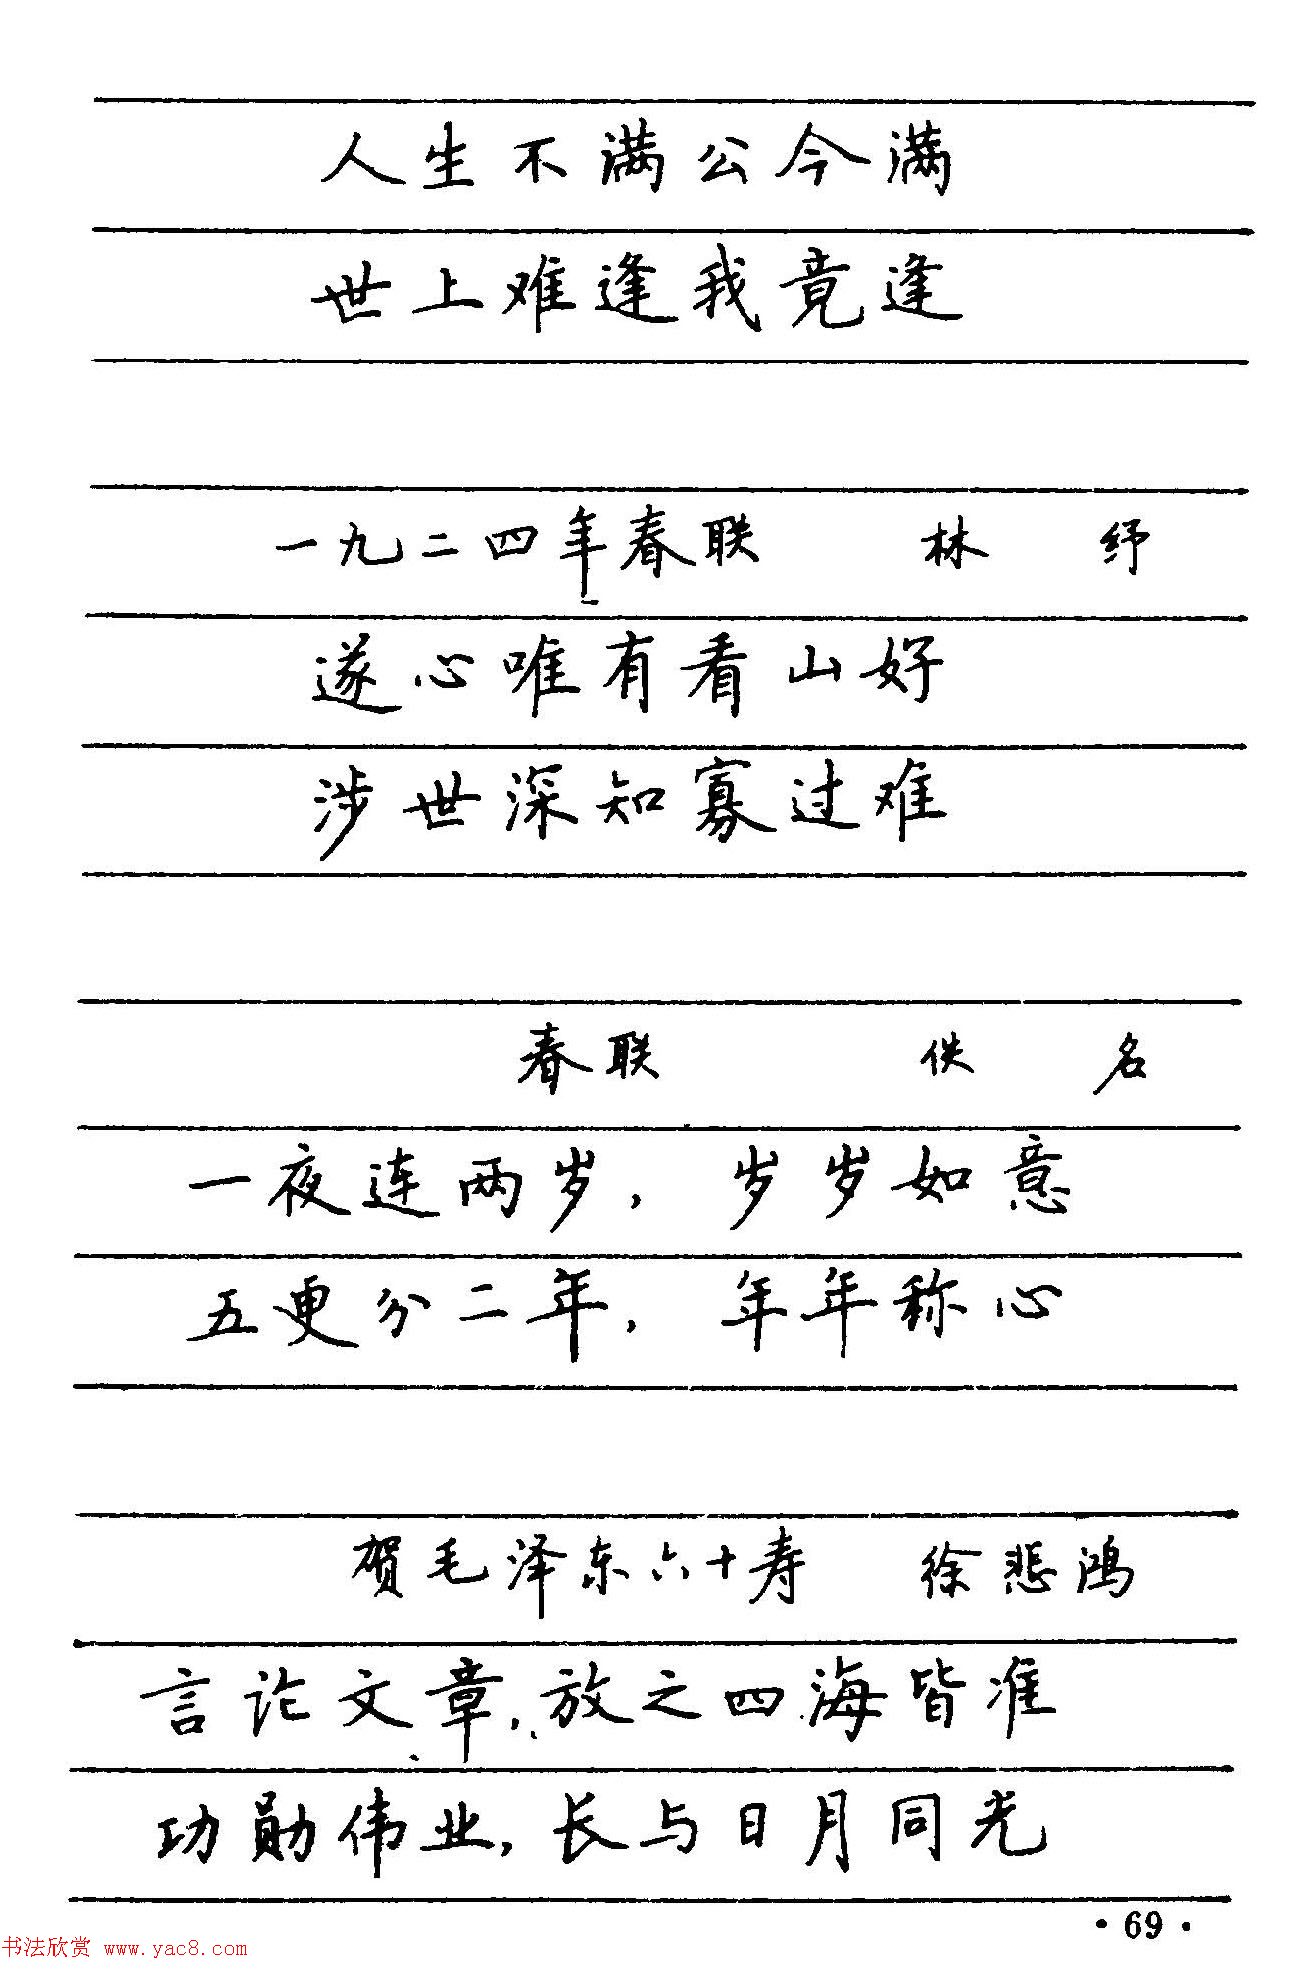 人生不满公今满
世上难逢我竟逢
一九二四年春联 林纾
遂心唯有看山好
涉世深知寡过难
春联 佚名
一夜连两岁，岁岁如意
五更分二年，年年称心
贺毛泽东六十寿 徐悲鸿
言论文章，放之四海皆准
功勋伟业，长与日月同光
·69·
书法欣赏 www.yac8.com